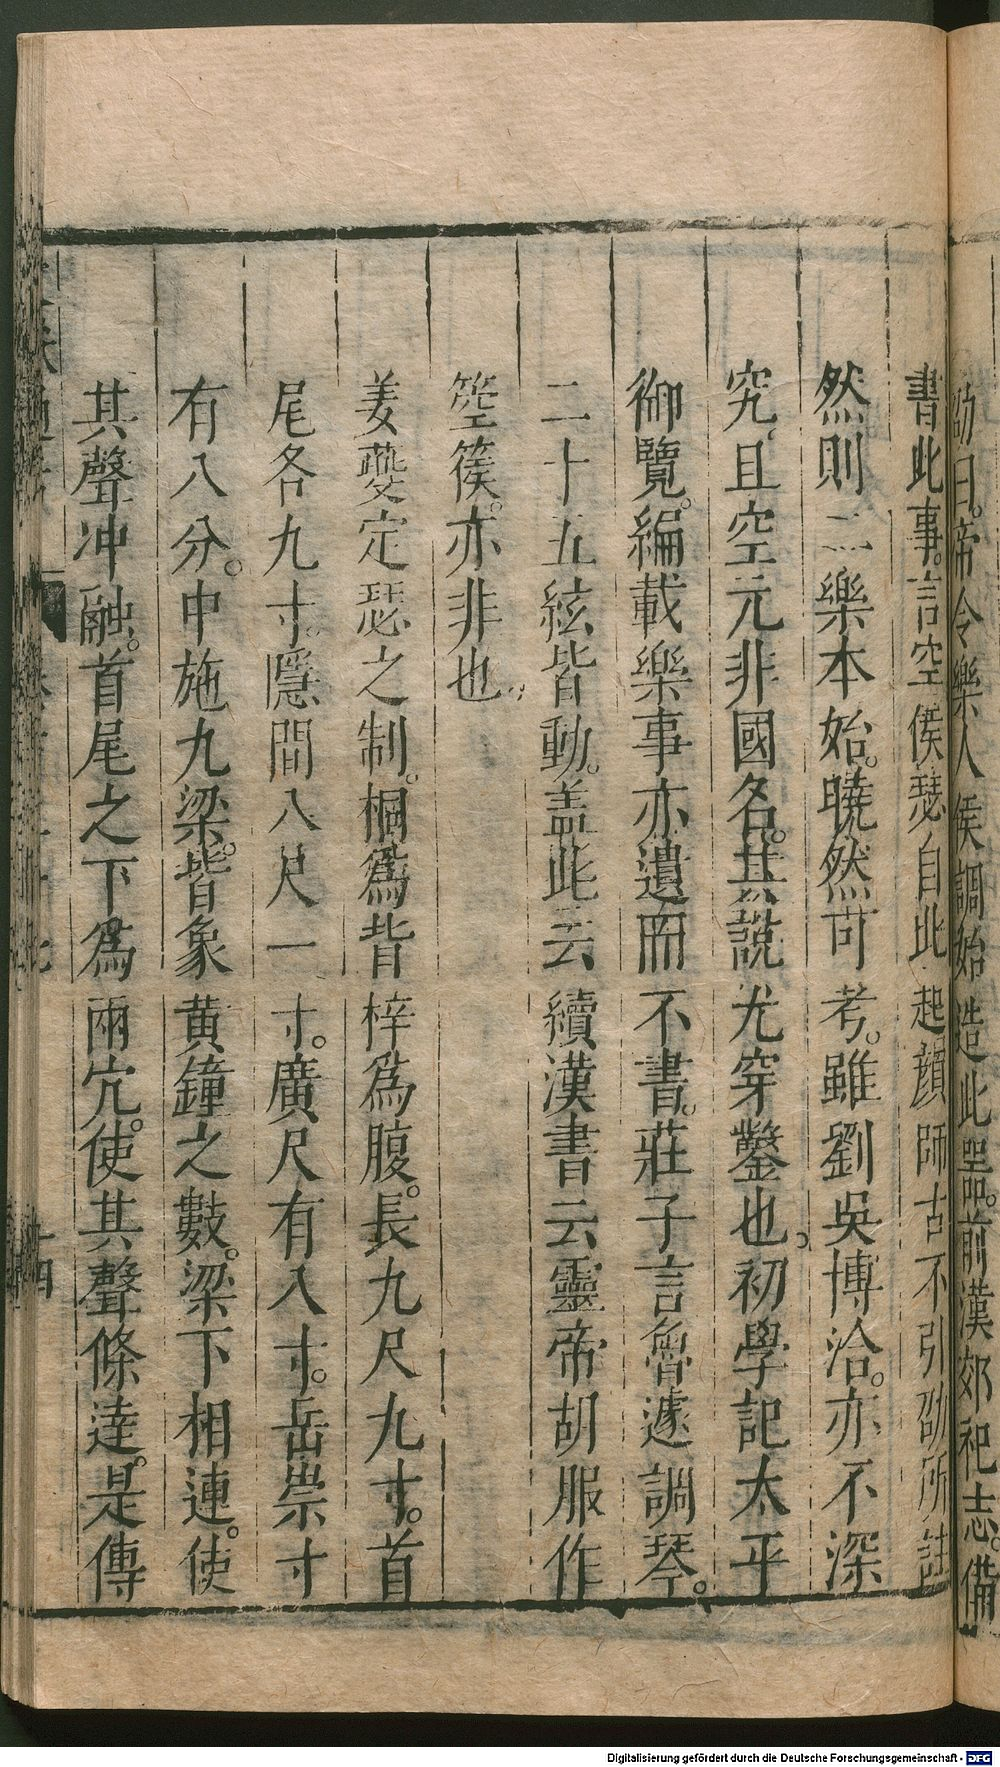 劭曰。帝令樂人侯調始造此器。前漢郊祀志。備
書此事。言空侯瑟自此起。顔師古不引劭所註
然則二樂本始。曉然可考。雖劉吳博洽。亦不深
究。且空元非國名。其說尤穿鑿也。初學記太平
御覽。編載樂事亦遺而不書。莊子言魯遽調琴。
二十五絃皆動。盖此云續漢書云靈帝胡服作
箜篌。亦非也。
姜夔定瑟之制。桐爲背梓爲腹。長九尺九寸。首
尾各九寸。隱間八尺一寸。廣尺有八寸。岳崇寸
有八分。中施九梁。皆象黄鐘之數。梁下相連。使
其聲冲融。首尾之下爲兩穴。使其聲條達。是傳
Digitalisierung gefördert durch die Deutsche Forschungsgemeinschaft - DFG